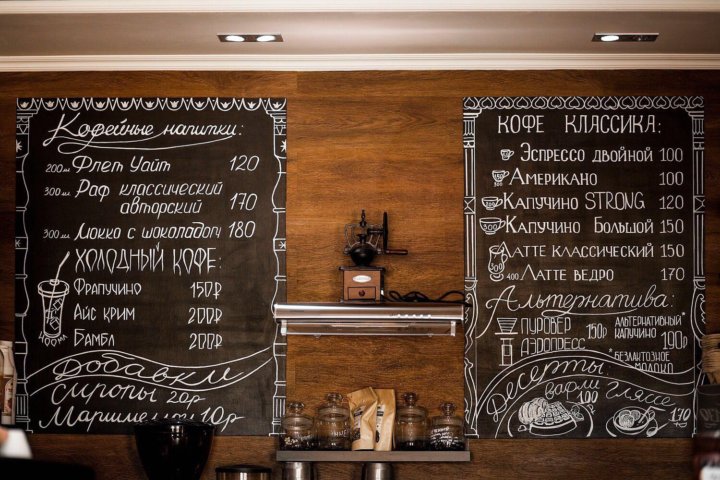 Кофейные напитки:
200мл Флет Уайт 120
300мл Раф классический
авторский 170
300мл Мокко с шоколадом 180
Холодный кофе:
Фрапучино 150₽
Айс крим 200₽
Бамбл 200₽
400мл
Добавки
Сиропы 20р
Маршмеллоу 10р
Кофе классика:
Эспрессо двойной 100
300 Американо 100
200 Капучино STRONG 120
300 Капучино Большой 150
Латте классический 150
300
400 Латте ведро 170
Альтернатива:
Пуровер
Аэропресс 150р
Альтернативный
капучино 190р
*безлактозное
молоко
Десерты
вафли 100
гляссе 170